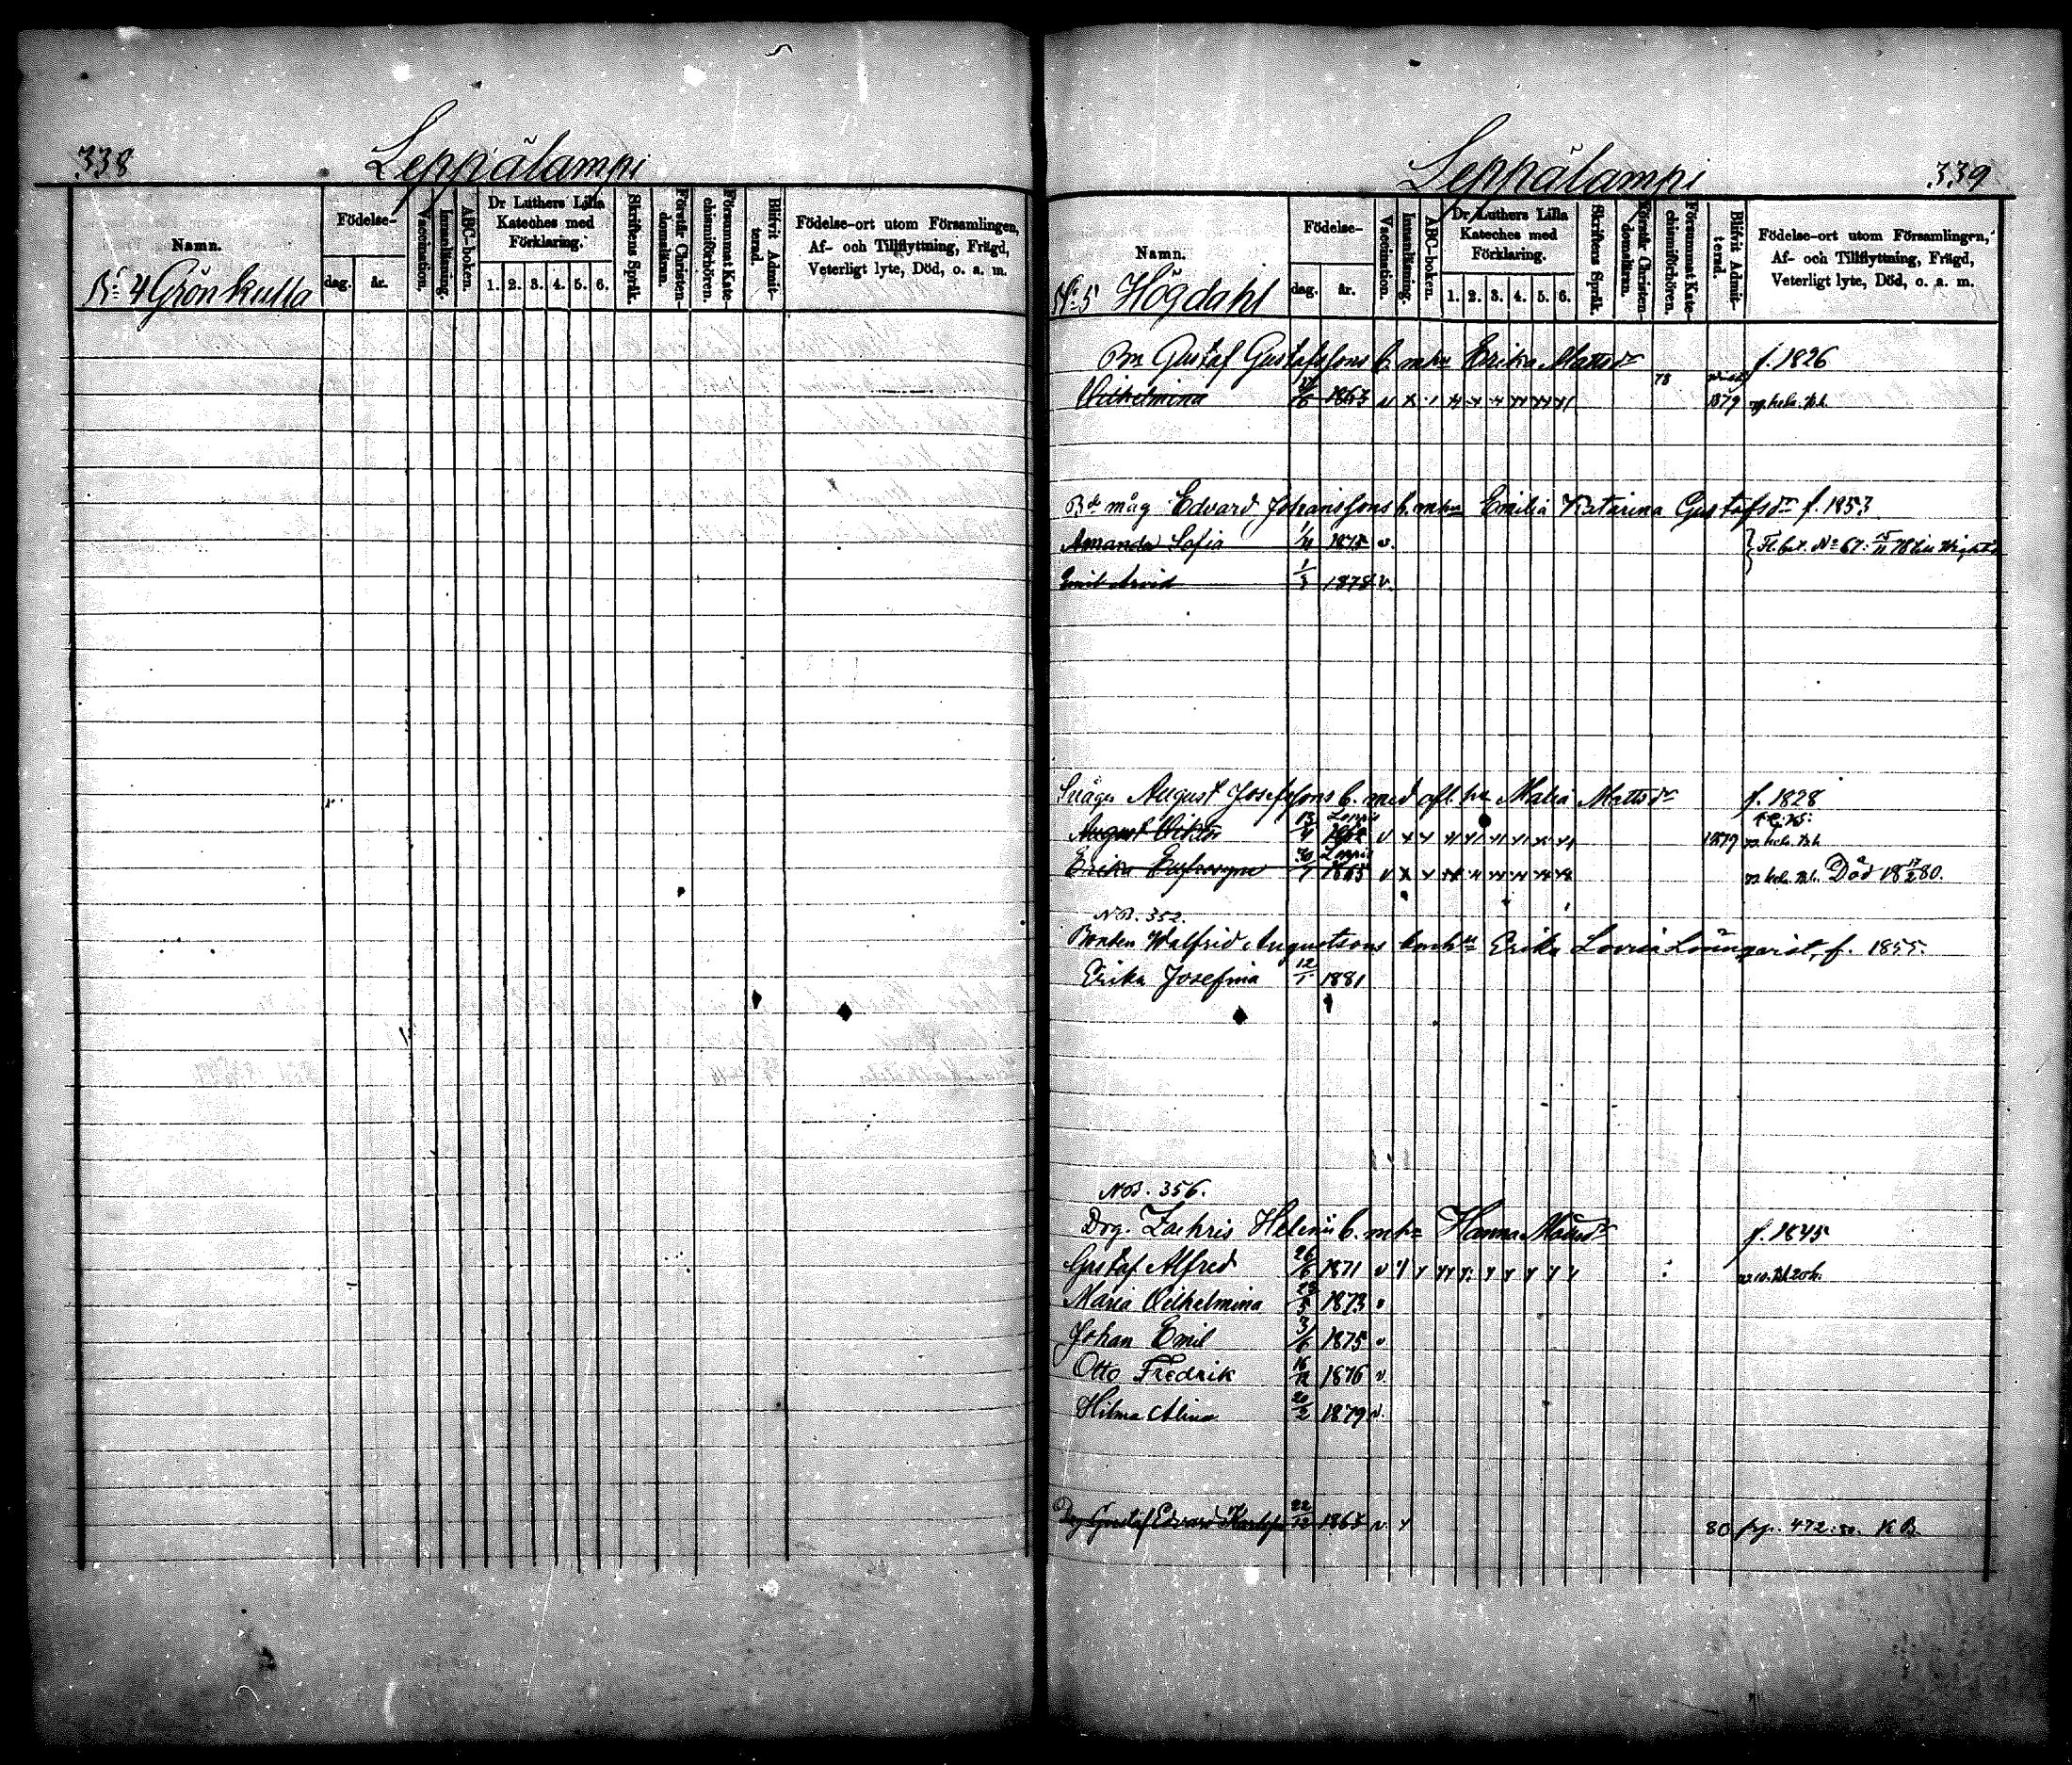 338
Leppälampi
Namn.
Födelse-
dag.
år.
Vaccination.
Innanläsning.
ABC-boken.
Dr Luthers Lilla
Kateches med
Förklaring.
1. 2. 3. 4. 5. 6.
Skriftens Språk.
Förstår Christen-
domsläran.
Försummat Kate-
chismiförhören.
Blifvit Admit-
terad.
Födelse-ort utom Församlingen,
Af- och Tillflyttning, Frägd,
Veterligt lyte, Död, o. a. m.
N:o 4 Grönkulla
Leppälampi
339
Namn.
Födelse-
dag.
år.
Vaccination.
Innanläsning.
ABC-boken.
Dr Luthers Lilla
Kateches med
Förklaring.
1. 2. 3. 4. 5. 6.
Skriftens Språk.
Förstår Christen-
domsläran.
Försummat Kate-
chismiförhören.
Blifvit Admit-
terad.
Födelse-ort utom Församlingen,
Af- och Tillflyttning, Frägd,
Veterligt lyte, Död, o. a. m.
N:o 5 Högdahl
Bn Gustaf Gustafssons b. m hu Erika Mattsdr f. 1826
Wilhelmina 1863 v 78 1879
måg Edvard Johanssons b. m hu Emilia Katarina Gustafsdr f. 1853
Amanda Sofia 1/11 1875 v.
Emil Arvid 1/3 1878 v.
August Josefssons b. med afl. hu Maria Mattsdr f. 1828
August Viktor 13/4 1862 v 1879
Erika 30/7 1865 v Död 18 17/2 80.
NB. 352.
Bonden Walfrid Augustsons b m hu Erika Lovisa Lönnqvist, f. 1855.
Erika Josefina 12/1 1881
NB. 356.
Drg. Zachris Heleni b. m hu Hanna f. 1845
Gustaf Alfred 26/6 1871 v
Maria Wilhelmina 23/5 1873 v
Johan Emil 3/6 1875 v
Otto Fredrik 16/12 1876 v.
Hilma Alina 20/2 1879 v.
Drg Gustaf Edvard 22/12 186 v 80 472